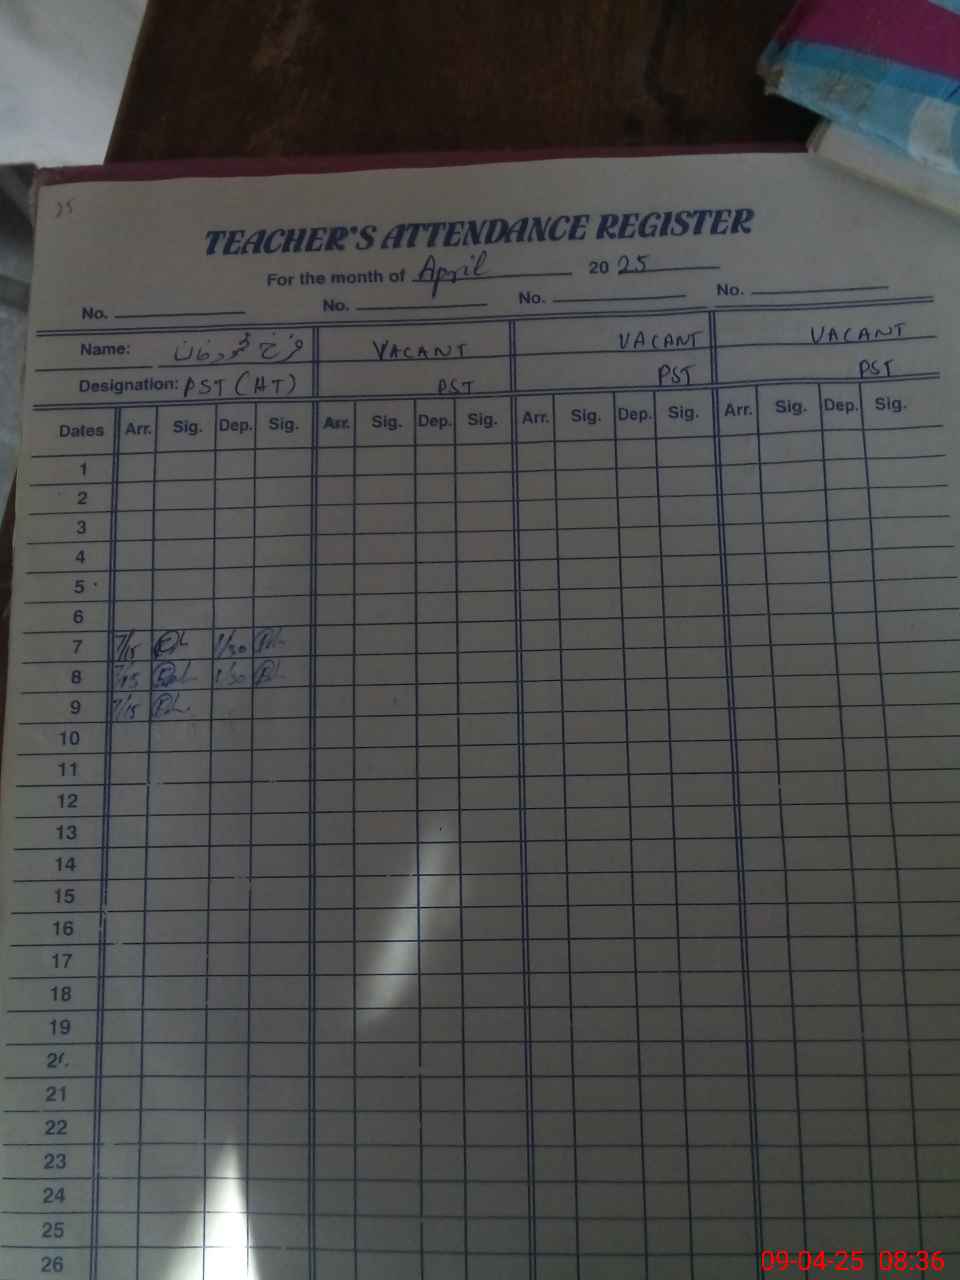 25
TEACHER'S ATTENDANCE REGISTER
For the month of April 2025
No. No. No. No.
Name: فرخ محمود خان VACANT VACANT VACANT
Designation: PST (HT) PST PST PST
Dates Arr. Sig. Dep. Sig. Arr. Sig. Dep. Sig. Arr. Sig. Dep. Sig. Arr. Sig. Dep. Sig.
1
2
3
4
5
6
7 7/15 1/30
8 7/15 1/30
9 7/15
10
11
12
13
14
15
16
17
18
19
20
21
22
23
24
25
26
09-04-25 08:36